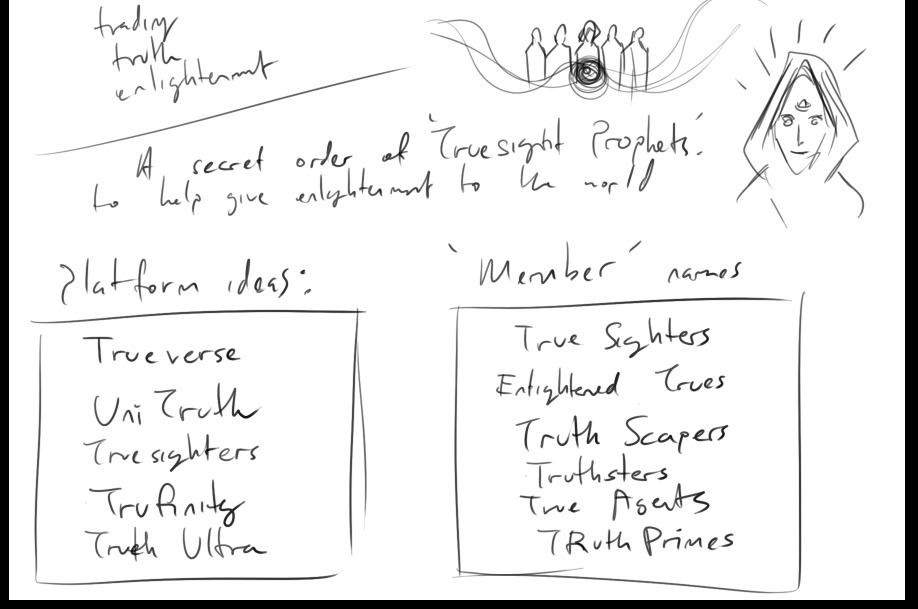 trading
truth
enlightenment
A secret order of 'Truesight Prophets'
to help give enlightenment to the world
Platform ideas:
'Member' names
Trueverse
UniTruth
Truesighters
Trufinity
Truth Ultra
True Sighters
Enlightened Trues
Truth Scapers
Truthsters
True Agents
TRuth Primes